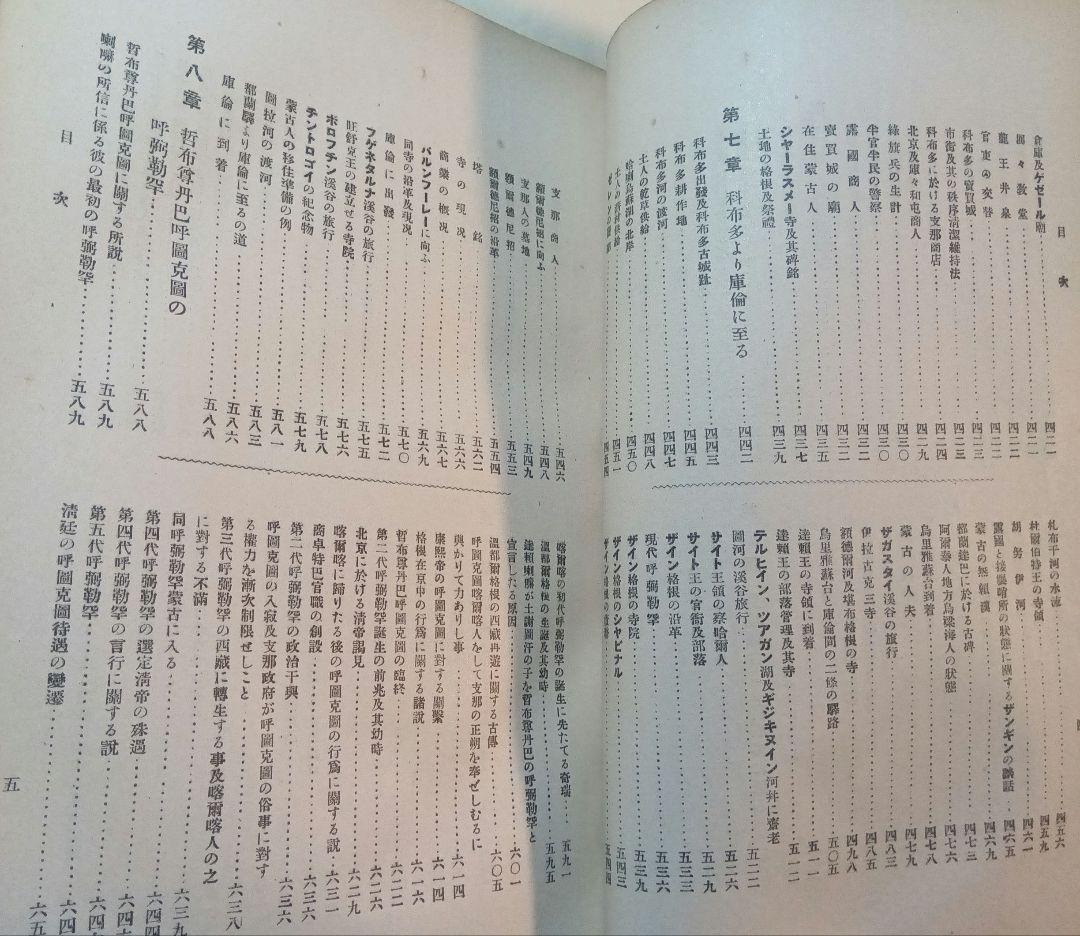 目次
倉庫及ゲゼール廟……四二一
馬々教堂……四二一
龍王井泉……四二二
官吏の交替……四二二
科布多の賣買城……四二三
市街及其の秩序清潔維持法
科布多に於ける支那商店……四二四
北京及庫々和屯商人……四二九
綠旗兵の生計……四三〇
半官半民の警察……四三〇
露國商人……四三一
賣買城の廟……四三二
在住蒙古人……四三五
シャーラスメー寺及其碑銘……四三七
土地の格根及祭禮……四三九
第七章 科布多より庫倫に至る……四四二
科布多出發及科布多古城趾……四四三
科布多耕作地……四四五
科布多河の渡河……四四七
土人の乾草供給……四四八
哈喇烏蘇湖の北岸……四五〇
札布干河の水流……四五六
杜爾伯特王の寺領……四五九
胡努伊河……四六一
露國と接壤哨所の狀態に關するザンギンの談話……四六五
蒙古の無賴漢……四六九
鄂蘭達巴に於ける古碑……四七三
阿爾泰人地方烏梁海人の狀態……四七六
烏里雅蘇台到着……四七八
蒙古の人夫……四七九
ザガスタイ溪谷の旅行……四八三
伊拉古克三寺……四八五
額德爾河及堪布格根の寺……四九八
烏里雅蘇台と庫倫間の二條の驛路……五〇五
達賴王の寺領に到着……五一一
達賴王の部落管理及其寺……五一二
テルヒイン、ツアガン湖及ギジキヌイン河幷に齋老
圖河の溪谷旅行……五二二
サイト王領の察哈爾人……五二九
サイト王の官衙及部落……五三三
ザイン格根の沿革……五三三
現代呼弼勒罕……五三六
ザイン格根の寺院……五三九
ザイン格根のシャビナル……五四三
支那商人……五四六
額爾德尼招に向ふ……五四八
支那人の墓地……五四九
額爾德尼招……五五三
額爾德尼招の沿革……五五四
塔銘……五六二
寺の現况……五六六
商業の概况……五六七
バルンフーレーに向ふ……五六九
同寺の沿革及現况……五七〇
庫倫に出發……五七二
フゲネタルナ溪谷の旅行……五七五
旺舒克王の建立せる寺院……五七六
ホロフチン溪谷の旅行……五七八
チントロゴイの紀念物……五七九
蒙古人の移住準備の例……五八一
圖拉河の渡河……五八三
鄂蘭驛より庫倫に至るの道……五八六
庫倫に到着……五八八
第八章 哲布尊丹巴呼圖克圖の
呼弼勒罕……五八八
哲布尊丹巴呼圖克圖に關する所說……五八九
喇嘛の所信に係る彼の最初の呼弼勒罕……五八九
目次
喀爾喀の初代呼弼勒罕の誕生に先だてる奇瑞……五九一
溫都爾格根の生誕及其幼時……五九五
達賴喇嘛が土謝圖汗の子を哲布尊丹巴の呼弼勒罕と
宣言したる原因……六〇一
溫都爾格根の西藏再遊に關する古傳……六〇五
呼圖克圖喀爾喀人をして支那の正朔を奉ぜしむるに
與かりて力ありし事……六一四
康熙帝の呼圖克圖に對する關繫……六一四
格根在京中の行爲に關する諸說……六一六
哲布尊丹巴呼圖克圖の臨終……六二二
第二代呼弼勒罕誕生の前兆及其幼時……六二六
北京に於ける清帝謁見……六二九
喀爾喀に歸りたる後の呼圖克圖の行爲に關する說……六三一
商卓特巴官職の創設……六三六
第二代呼弼勒罕の政治干與……六三六
呼圖克圖の入寂及支那政府が呼圖克圖の俗事に對す
る權力を漸次制限せしこと……六三八
第三代呼弼勒罕の西藏に轉生する事及喀爾喀人の之
に對する不滿……六三九
同呼弼勒罕蒙古に入る
第四代呼弼勒罕の選定淸帝の殊遇
第四代呼弼勒罕の言行に關する說
第五代呼弼勒罕
淸廷の呼圖克圖待遇の變遷
五